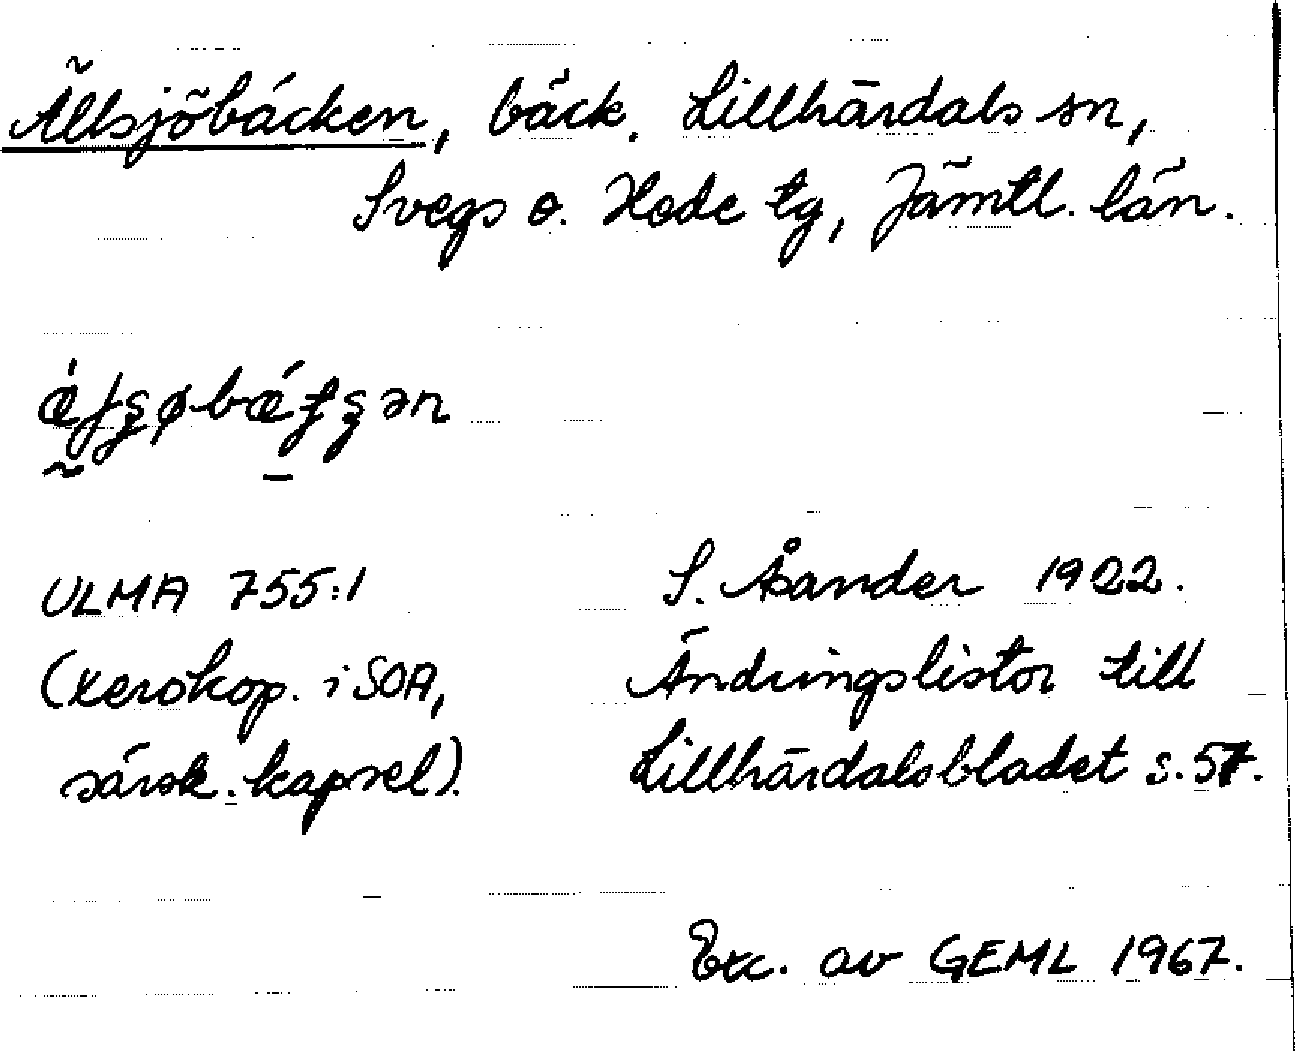 Ällsjöbäcken, bäck. Lillhärdals sn,
Svegs o. Hede tg, Jämtl. län.
ULMA 755:1
(xerokop. i SOA,
särsk. kapsel).
S. Åsander 1922.
Ändringslistor till
Lillhärdalsbladet s. 57.
Exc. av GEML 1967.